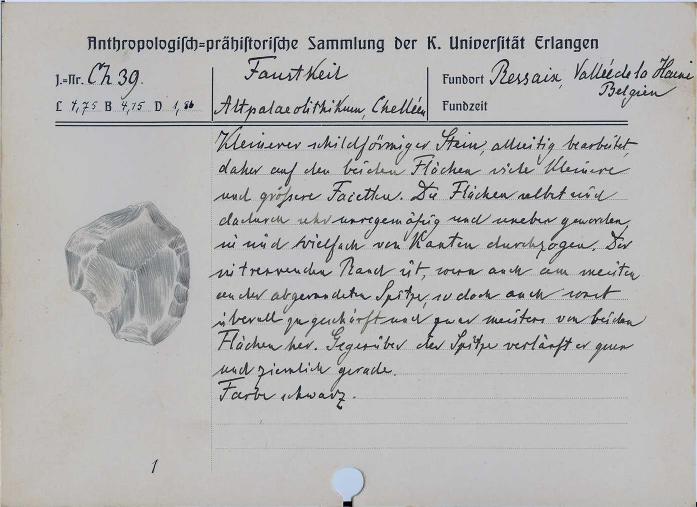 Anthropologisch=prähistorische Sammlung der K. Universität Erlangen
J.=Nr. Ch 39.
L 4,75 B 4,15 D 1,86
Faustkeil
Altpalaeolithikum, Chelléen
Fundort Ressaix, Vallée de la Haine
Belgien
Fundzeit
Kleinerer schildförmiger Stein, allseitig bearbeitet,
daher auf den beiden Flächen viele kleinere
und grössere Facetten. Die Flächen selbst sind
dadurch sehr unregemäßig und uneben geworden,
sie sind vielfach von Kanten durchzogen. Der
sie trennenden Rand ist, wenn auch am meisten
an der abgerundeten Spitze, so doch auch sonst
überall zugeschärft und zwar meistens von beiden
Flächen her. Gegenüber der Spitze verläuft er quer
und ziemlich gerade.
Farbe schwarz.
1